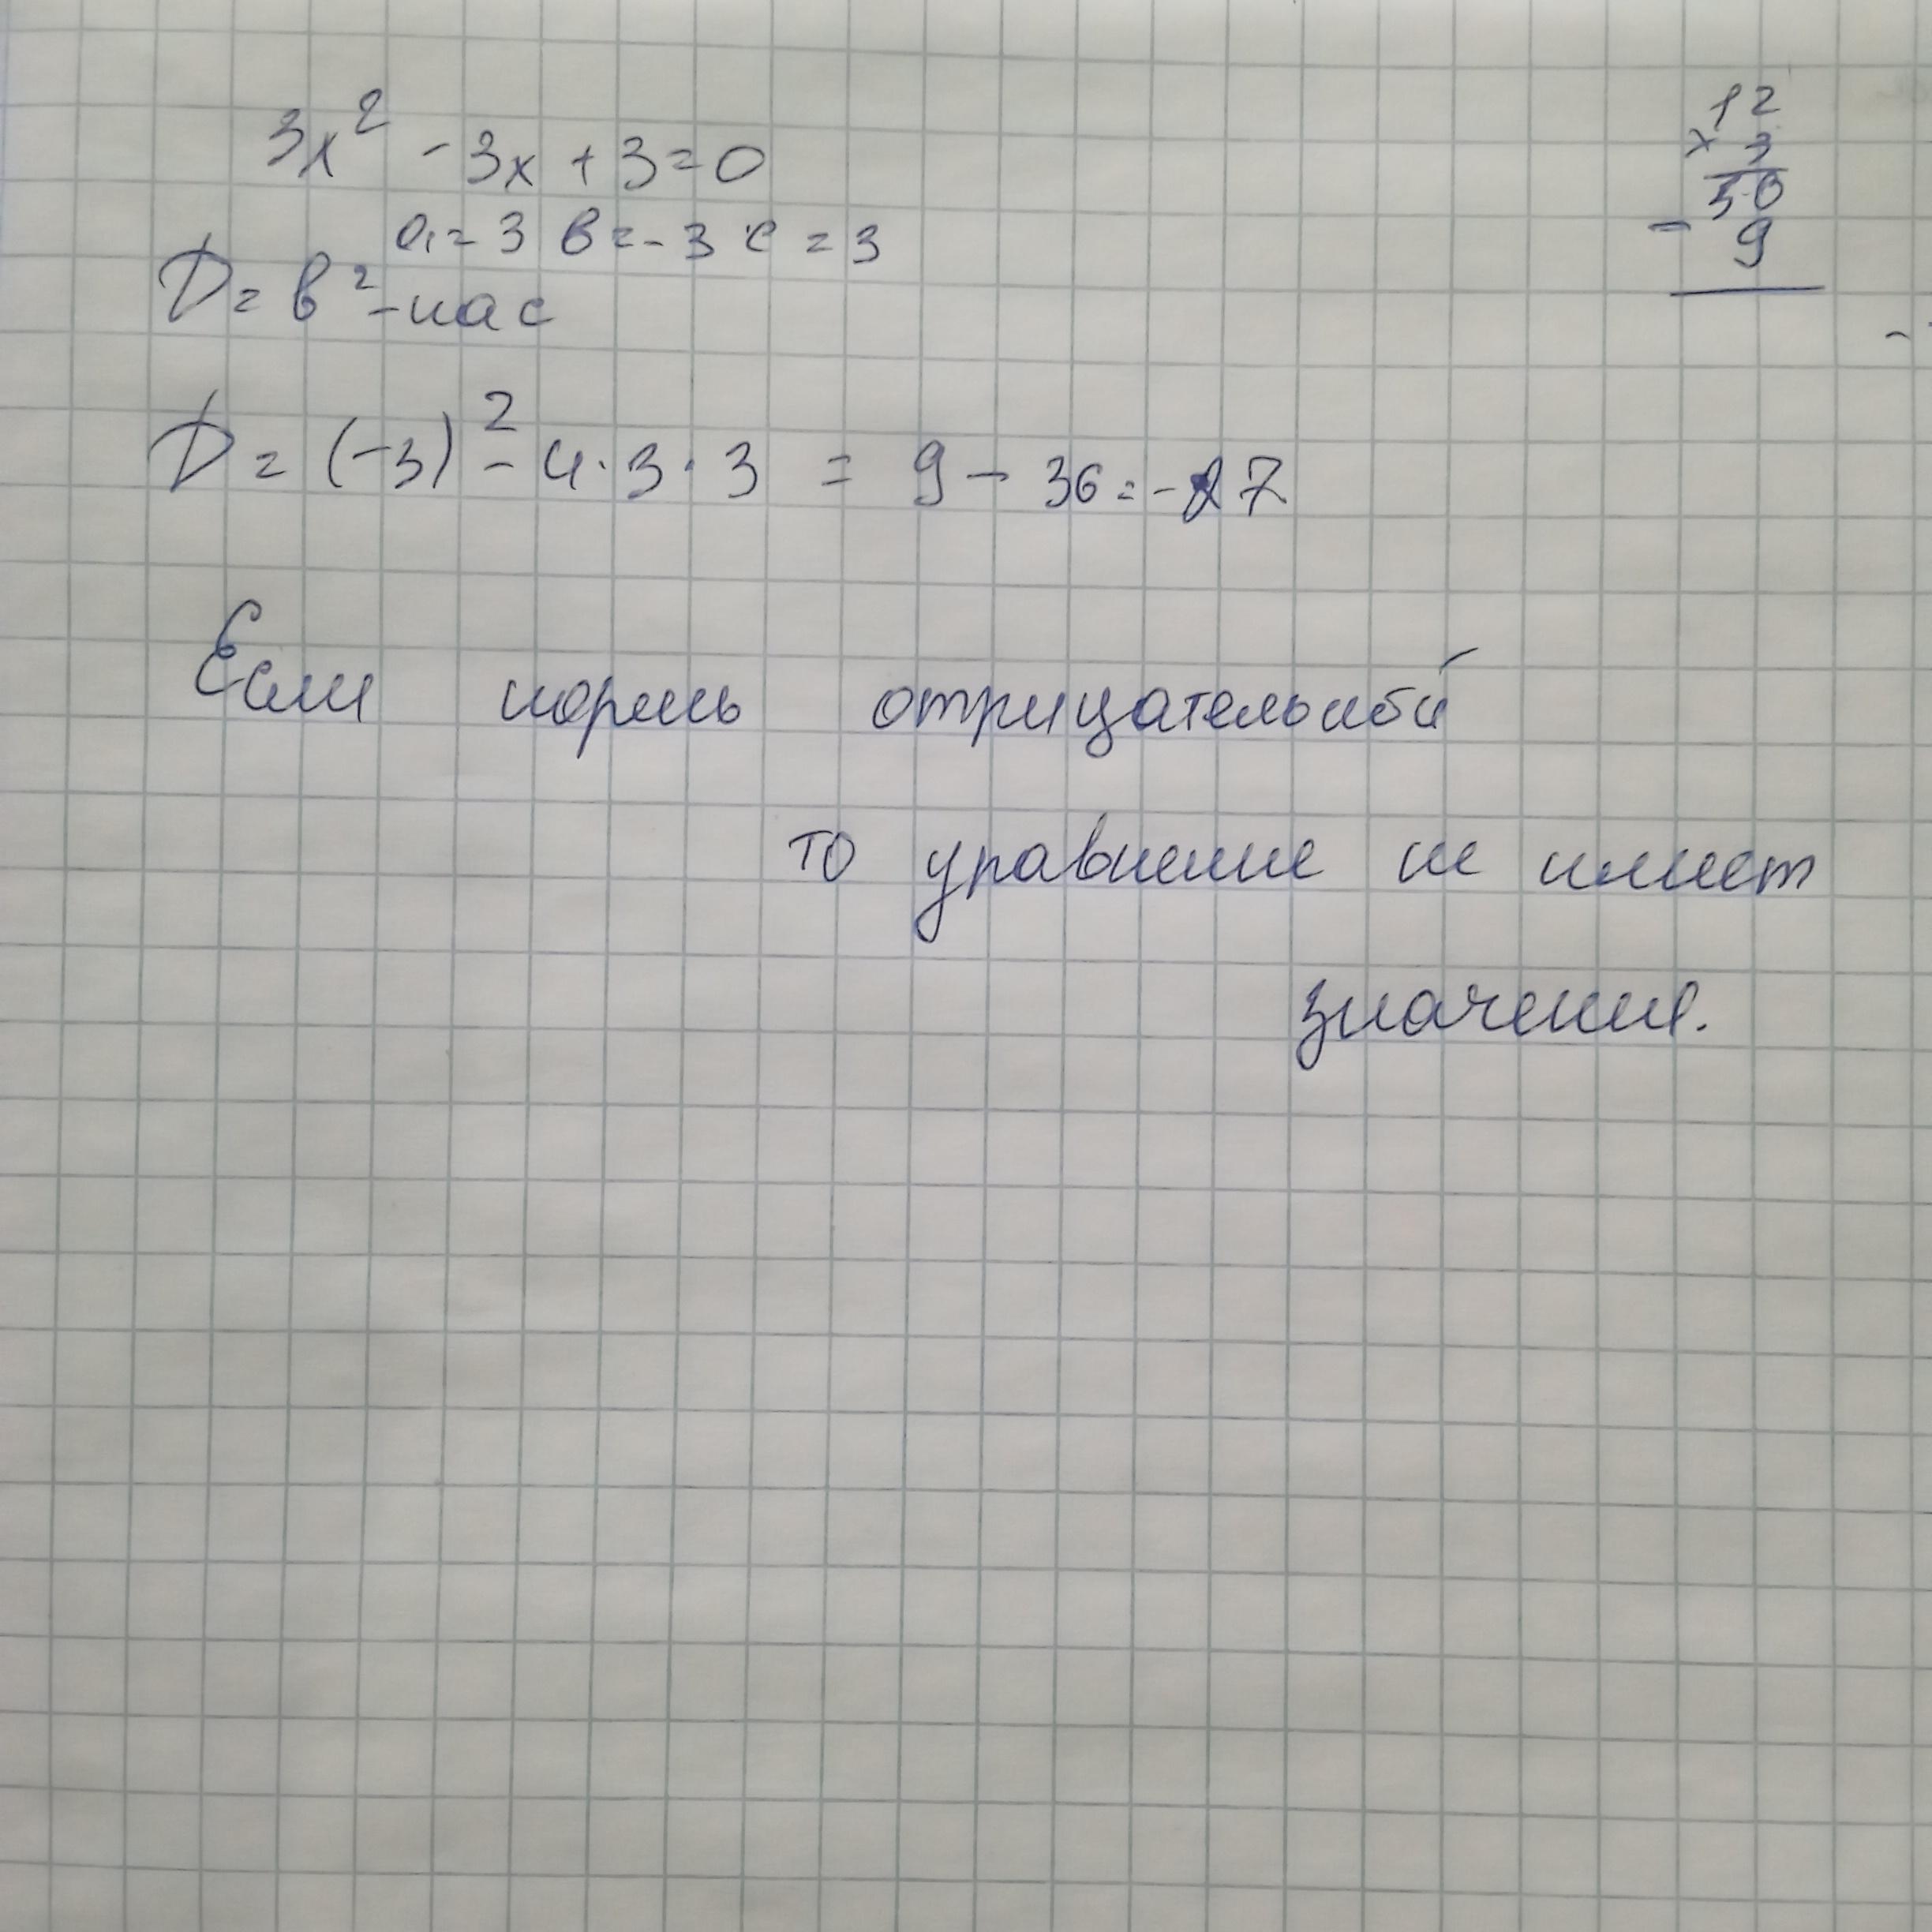 3x² - 3x + 3 = 0
a = 3 b = -3 c = 3
D = b² - 4ac
D = (-3)² - 4·3·3 = 9 - 36 = -27
Если корень отрицательный
то уравнение не имеет
значения.
12
× 3
36
- 9